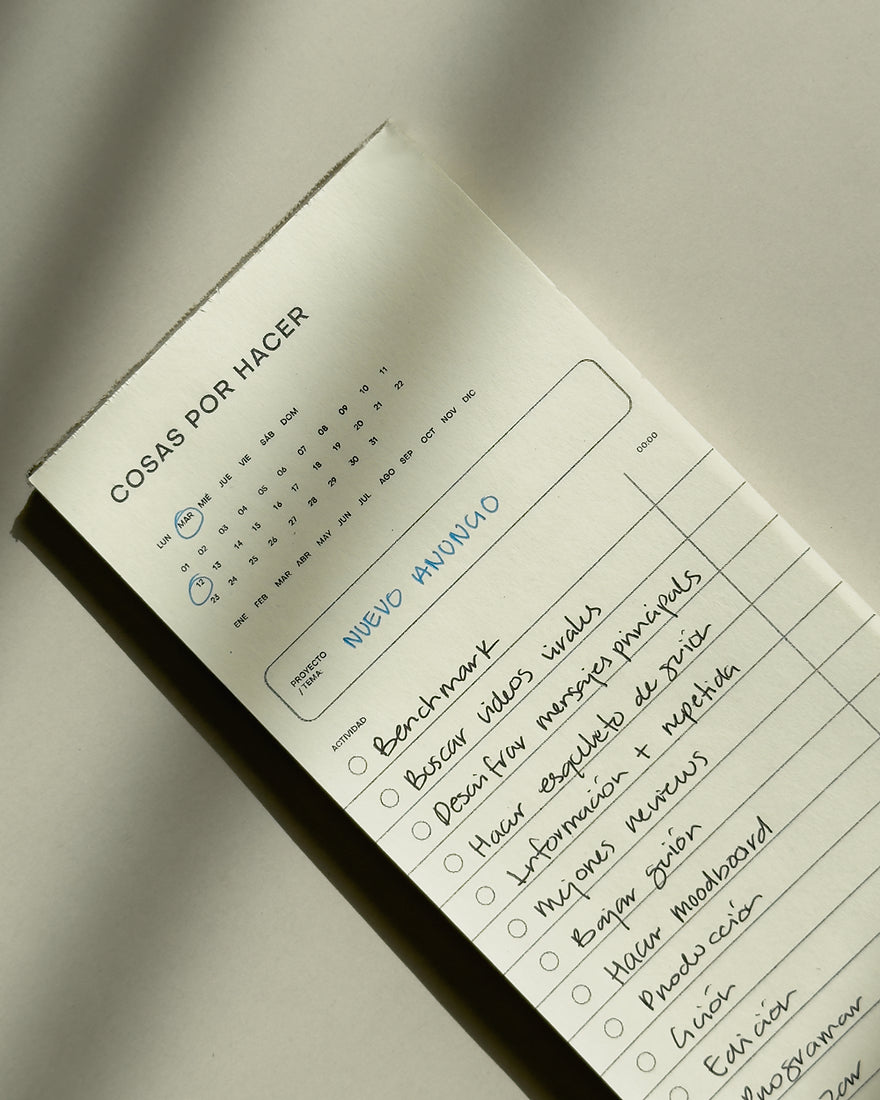 COSAS POR HACER
LUN MAR MIÉ JUE VIE SÁB DOM
01 02 03 04 05 06 07 08 09 10 11
12 13 14 15 16 17 18 19 20 21 22
23 24 25 26 27 28 29 30 31
ENE FEB MAR ABR MAY JUN JUL AGO SEP OCT NOV DIC
PROYECTO
/ TEMA
NUEVO ANUNCIO
ACTIVIDAD 00:00
Benchmark
Buscar videos virales
Descifrar mensajes principals
Hacer esqueleto de guión
Información + repetida
Mejores reviews
Bajar guión
Hacer moodboard
Producción
Guión
Edición
Programar